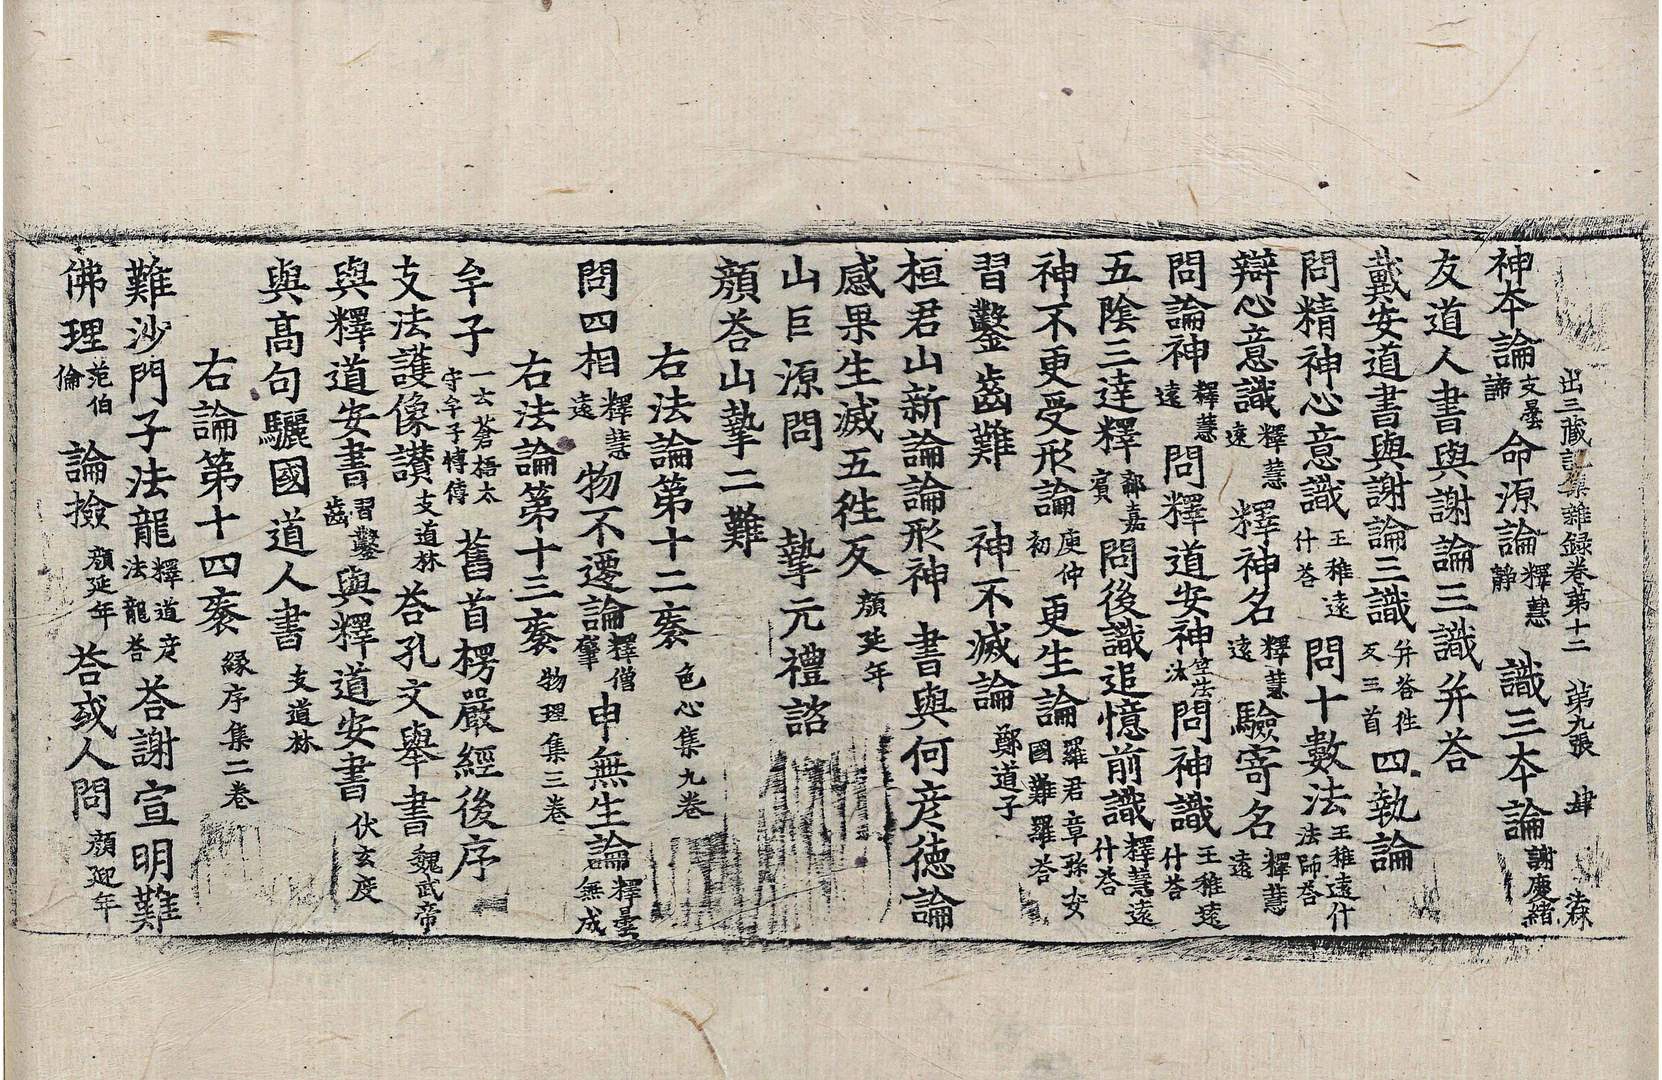 出三藏記集雜録卷第十二 第九張 肆
神本論支曇諦 命源論釋慧靜 識三本論謝慶緒
友道人書與謝論三識并荅
戴安道書與謝論三識并荅徃反三首 四執論
問精神心意識王稚遠什荅 問十數法王稚遠什法師荅
辯心意識釋慧遠 釋神名釋慧遠 驗寄名釋慧遠
問論神釋慧遠 問釋道安神竺法汰 問神識王稚遠什荅
五陰三達釋郗嘉賓 問後識追憶前識釋慧遠什荅
神不更受形論庾仲初 更生論羅君章孫安國難羅荅
習鑿齒難 神不滅論鄭道子
桓君山新論論形神 書與何彦徳論
感果生滅五徃反顔延年
山巨源問 摯元禮諮
顔荅山摯二難
右法論第十二袠色心集九卷
問四相釋慧遠 物不遷論釋僧肇 申無生論釋曇無成
右法論第十三袠物理集三卷
牟子一云蒼梧太守牟子博傳 舊首楞嚴經後序
支法護像讃支道林 荅孔文舉書魏武帝
與釋道安書習鑿齒 與釋道安書伏玄度
與高句驪國道人書支道林
右論第十四袠縁序集二卷
難沙門子法龍釋道彦法龍荅 荅謝宣明難
佛理范伯倫 論撿顔延年 荅或人問顔延年